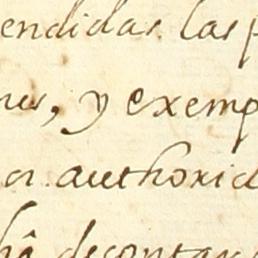 endidas. las p
nes, y exemp
or authorid
hâ decontar